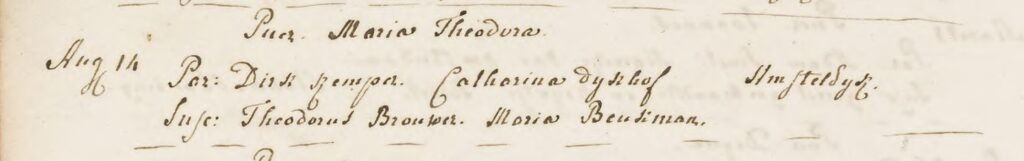 Puer. Maria Theodora.
Aug 14 Par: Dirk Kemper. Catharina Dykhof Amsteldyk.
Susc: Theodorus Brouwer. Maria Beukman.